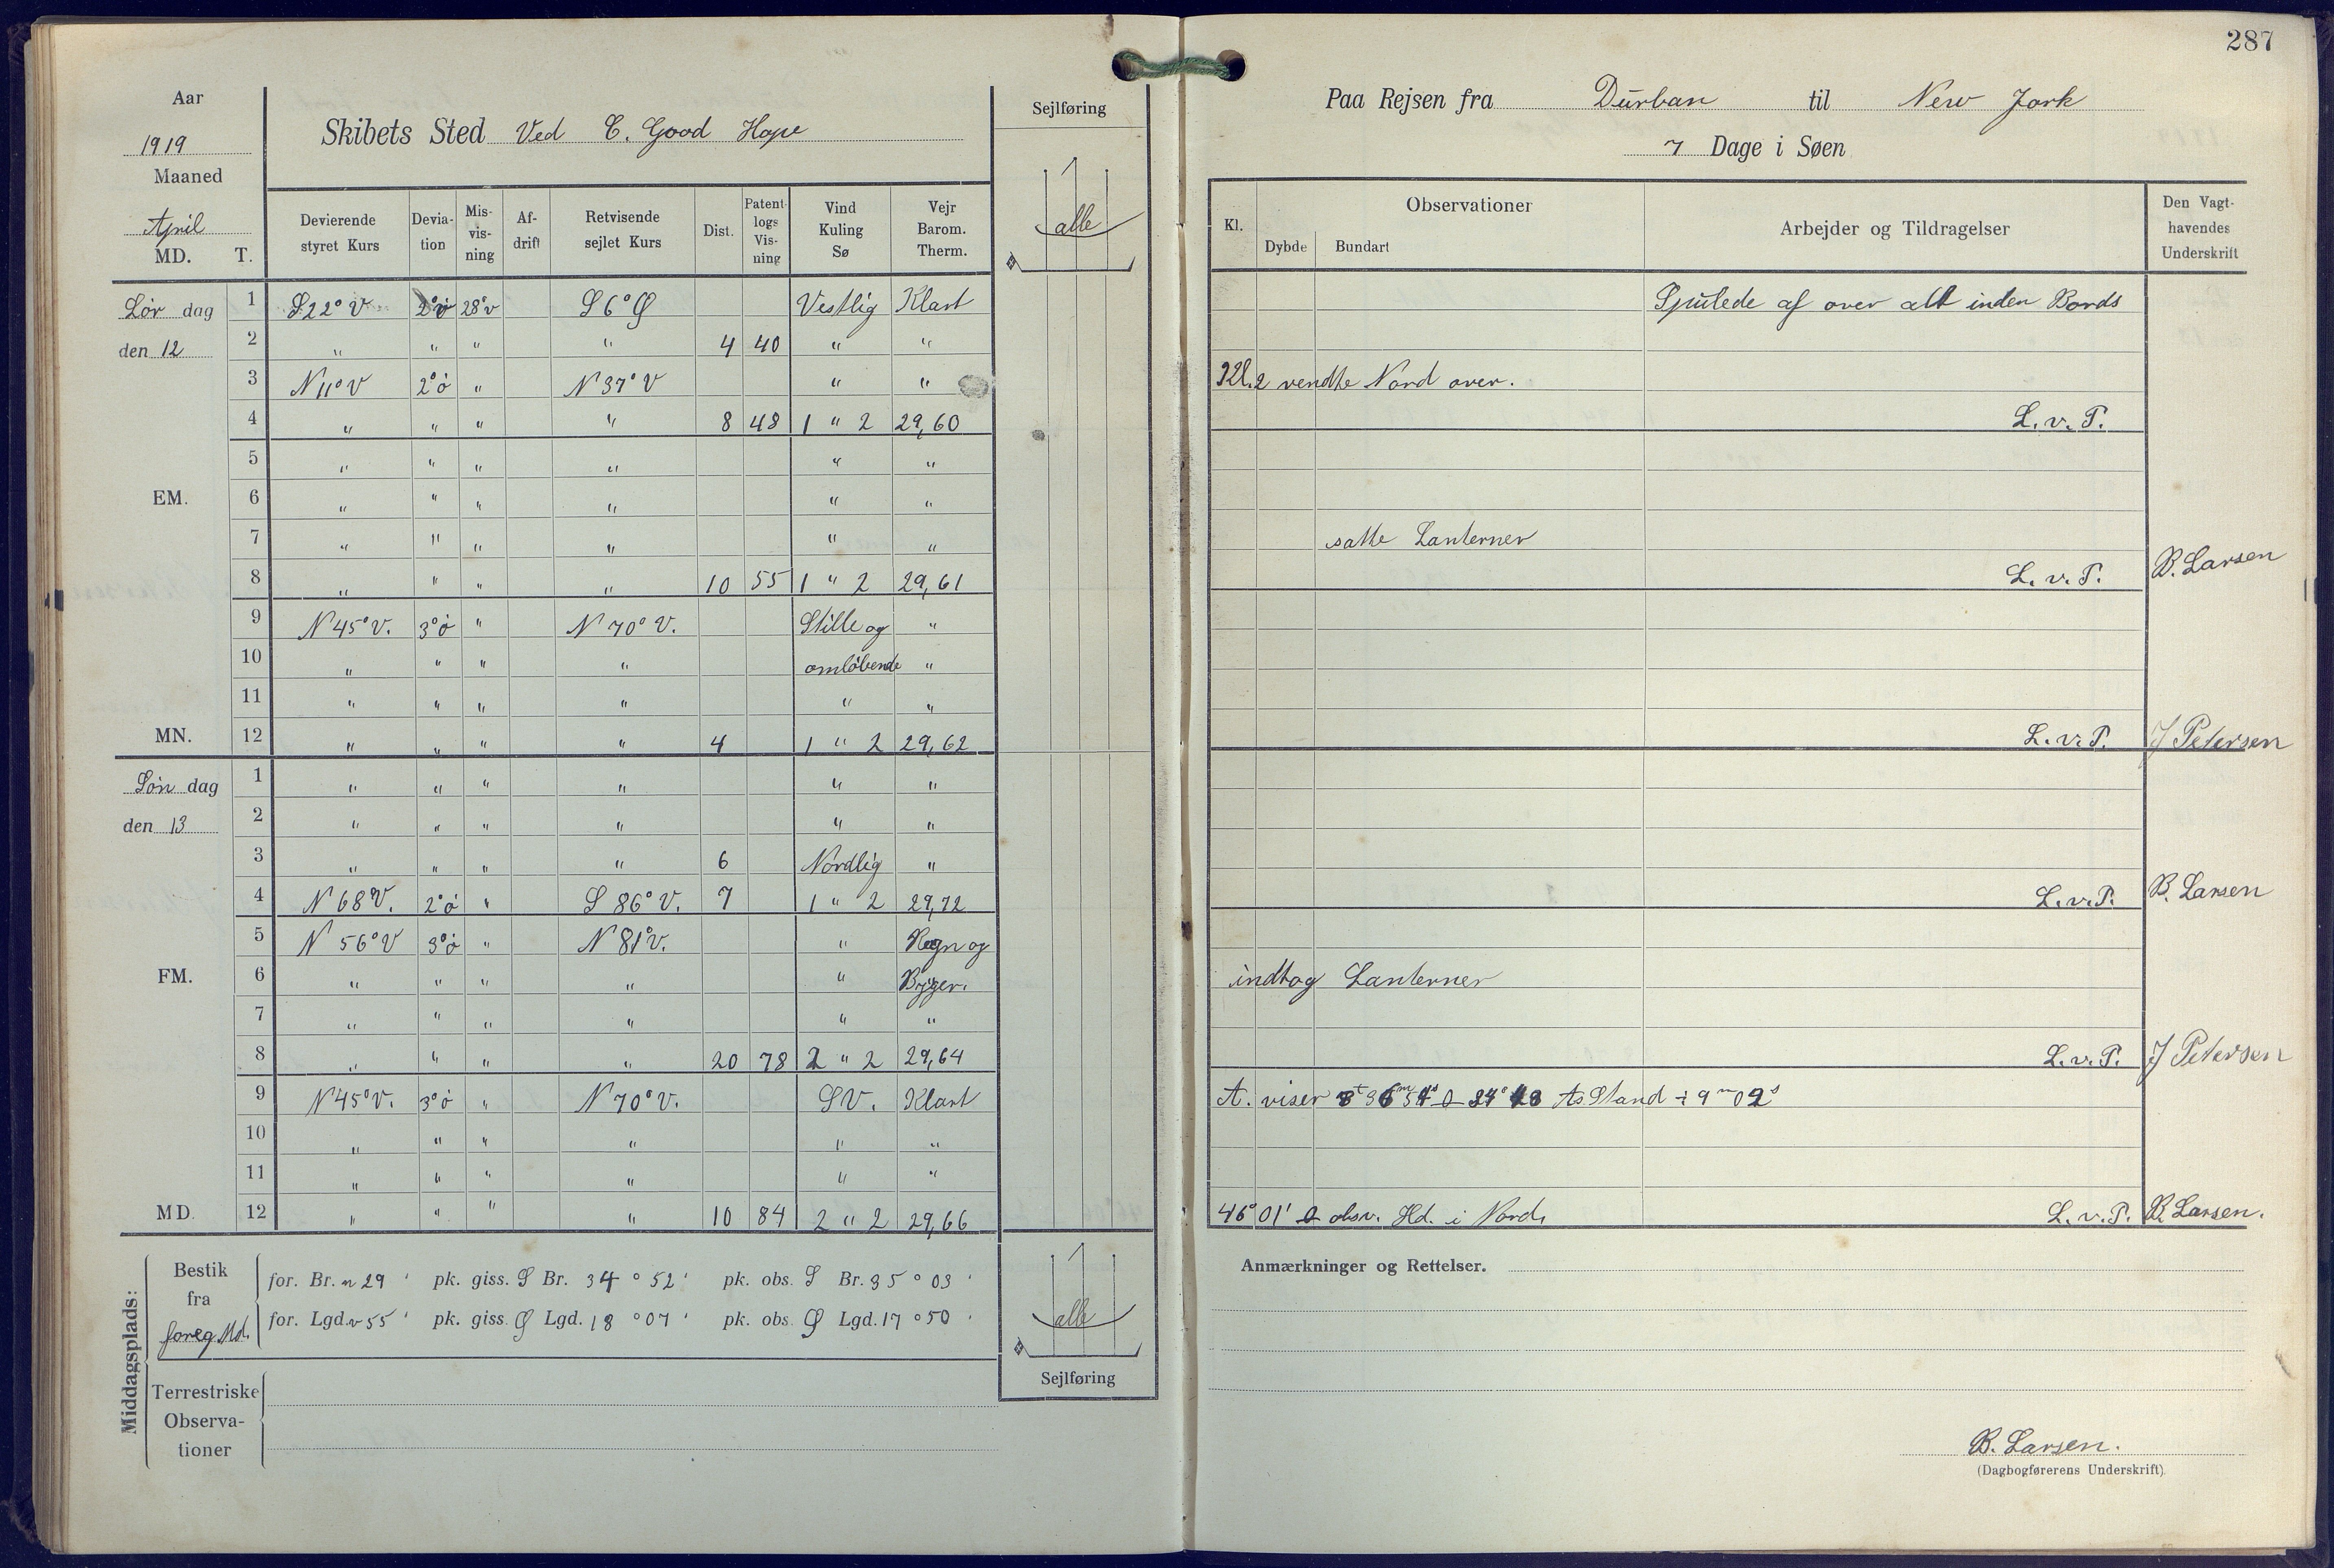 287
Aar
1919
Maaned
April
MD. T.
Skibets Sted Ved C. Good Hope
Sejlføring
alle
Paa Rejsen fra Durban til New York
7 Dage i Søen
Devierende styret Kurs Devia-tion Mis-vis-ning Af-drift Retvisende sejlet Kurs Dist. Patent-logs Vis-ning Vind Kuling Sø Vejr Barom. Therm.
Kl. Observationer Dybde Bundart Arbejder og Tildragelser Den Vagt-havendes Underskrift
Lör dag 1 S 22° V 2°ö 28°v S 6° Ø Vestlig Klart Spulede af over alt inden Bords
den 12 2 " " " " 4 40 " "
3 N 11° V 2°ö " N 37° V " " Kl. 2 vendte Nord over.
4 " " " " 8 48 1 " 2 29,60 L. v. P.
5 " " " " " "
EM. 6 " " " " " "
7 " " " " " " satte Lanterner
8 " " " " 10 55 1 " 2 29,61 L. v. P. B. Larsen
9 N 45° V. 3°ö " N 70° V. Stille og "
10 " " " " omlöbende "
11 " " " " " "
MN. 12 " " " " 4 1 " 2 29,62 L. v. P. J Petersen
Sön dag 1 " " " " " "
den 13 2 " " " " " "
3 " " " " 6 Nordlig "
4 N 68 V. 2°ö " S 86° V. 7 1 " 2 29,72 L. v. P. B. Larsen
5 N 56° V 3°ö " N 81° V. " Regn og
FM. 6 " " " " " Byger. indtog Lanterner
7 " " " " " "
8 " " " " 20 78 2 " 2 29,64 L. v. P. J Petersen
9 N 45° V. 3°ö " N 70° V. SV. Klart A. viser Stand ÷ 9 m 02 s
10 " " " " " "
11 " " " " " "
MD. 12 " " " " 10 84 2 " 2 29,66 46° 01' obsv. Hd. i Nord. L. v. P. B. Larsen.
Middagsplads:
Bestik fra foreg. Md.
for. Br. n 29 ' pk. giss. S Br. 34 ° 52 ' pk. obs. S Br. 35 ° 03 '
for. Lgd. v 55 ' pk. giss. Ø Lgd. 18 ° 07 ' pk. obs. Ø Lgd. 17 ° 50 '
Terrestriske Observa-tioner
alle
Sejlføring
Anmærkninger og Rettelser.
B. Larsen.
(Dagbogførerens Underskrift)